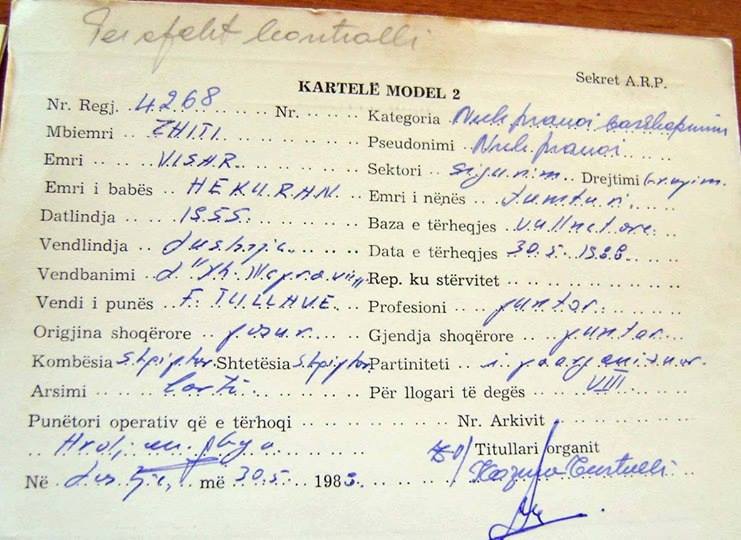 Per efekt kontrolli
Sekret A.R.P.
KARTELË MODEL 2
Nr. Regj. 4268 Nr. Kategoria Nuk pranoi bashkëpunim
Mbiemri ZHITI Pseudonimi Nuk pranoi
Emri VISAR Sektori sigurim Drejtimi
Emri i babës HEKURAN Emri i nënës
Datlindja 1955 Baza e tërheqjes vullnetare
Vendlindja Data e tërheqjes 30.5.1988
Vendbanimi Rep. ku stërvitet
Vendi i punës F. TULLAVE Profesioni puntor
Origjina shoqërore Gjendja shoqërore puntor
Kombësia Shqiptar Shtetësia Shqiptar Partiniteti i paorganizuar
Arsimi Lartë Për llogari të degës VIII
Punëtori operativ që e tërhoqi Nr. Arkivit
Titullari organit
Në më 30.5. 198